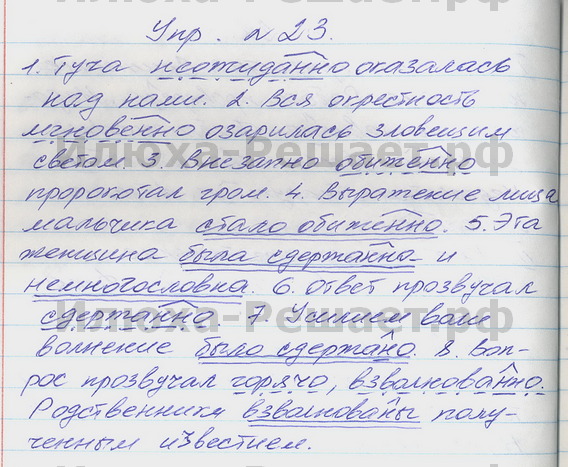 Упр. №23.
1. Туча неожиданно оказалась
над нами. 2. Вся окрестность
мгновенно озарилась зловещим
светом. 3. Внезапно обиженно
пророкотал гром. 4. Выражение лица
мальчика стало обиженно. 5. Эта
женщина была сдержанна и
немногословна. 6. Ответ прозвучал
сдержанно. 7. Усилием воли
волнение было сдержано. 8. Воп-
рос прозвучал горячо, взволнованно.
Родственники взволнованы полу-
ченным известием.
Илюха-Решает.рф
Илюха-Решает.рф
Илюха-Решает.рф
Илюха-Решает.рф